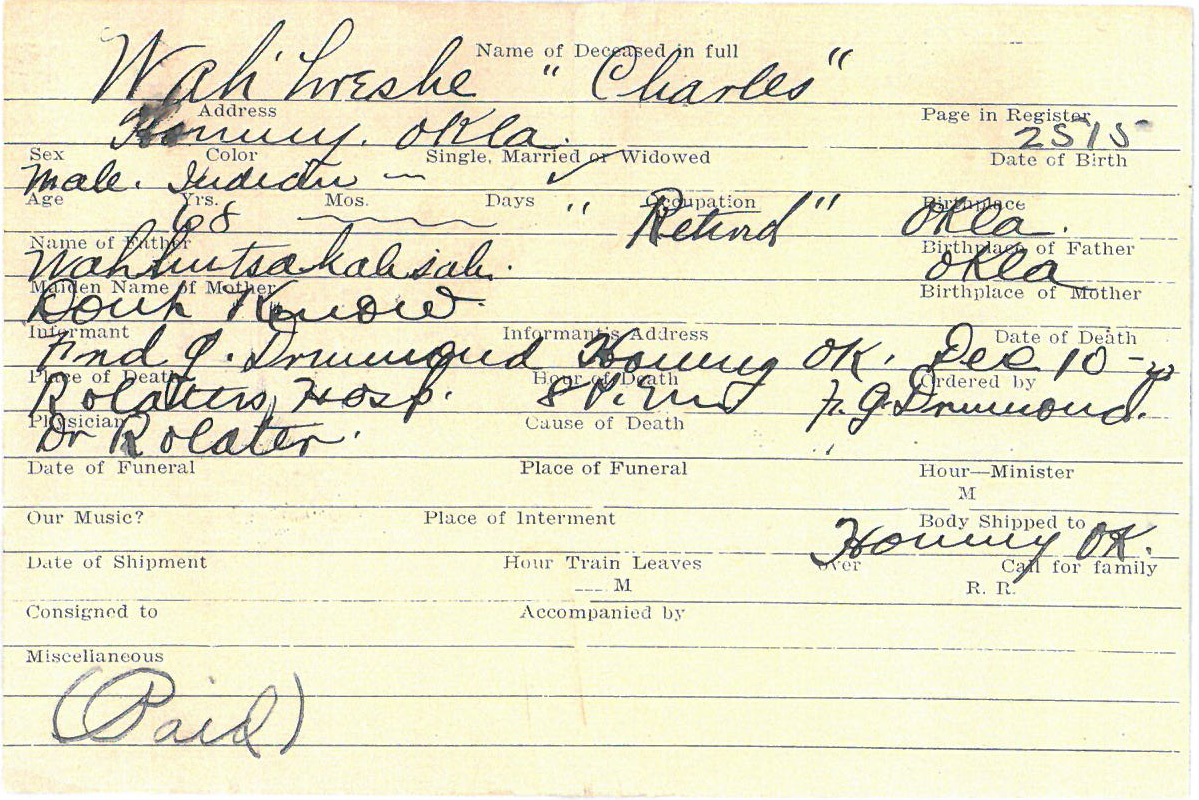 Name of Deceased in full
Wah hreshe "Charles"
Address Page in Register
Hominy. Okla. 2515
Sex Color Single, Married or Widowed Date of Birth
Male. Indian — ✓
Age Yrs. Mos. Days Occupation Birthplace
68 "Retird" Okla.
Name of Father Birthplace of Father
Okla
Maiden Name of Mother Birthplace of Mother
Dont Know.
Informant Informant's Address Date of Death
Fred G. Drummond Hominy OK. Dec 10
Place of Death Hour of Death Ordered by
Rolaters Hosp. 8 P.M. F. G. Drummond.
Physician Cause of Death
Dr Rolater.
Date of Funeral Place of Funeral Hour—Minister
M
Our Music? Place of Interment Body Shipped to
Hominy OK.
Date of Shipment Hour Train Leaves over Call for family
M R. R.
Consigned to Accompanied by
Miscellaneous
(Paid)